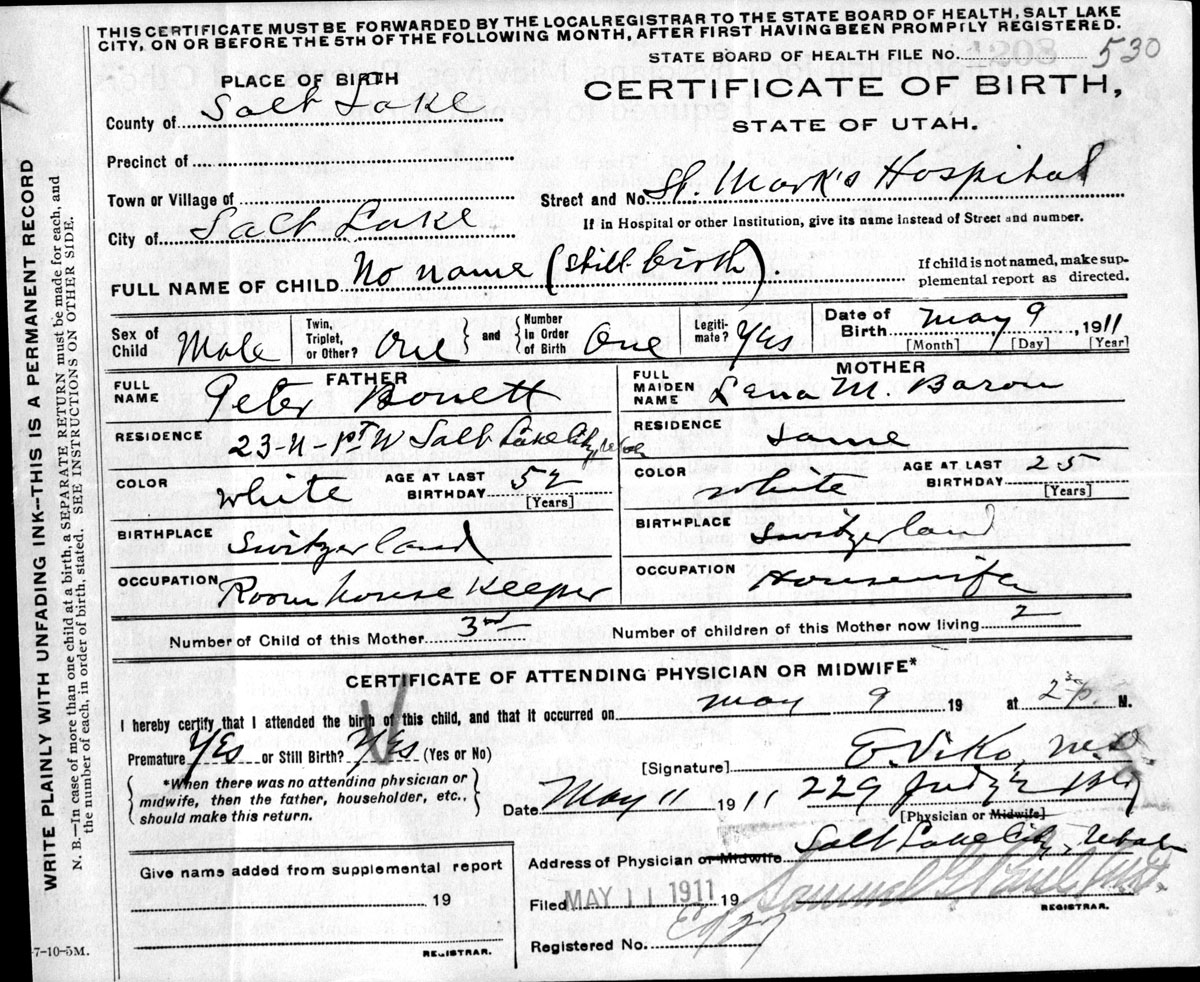 THIS CERTIFICATE MUST BE FORWARDED BY THE LOCALREGISTRAR TO THE STATE BOARD OF HEALTH, SALT LAKE
CITY, ON OR BEFORE THE 5TH OF THE FOLLOWING MONTH, AFTER FIRST HAVING BEEN PROMPTLY REGISTERED.
STATE BOARD OF HEALTH FILE No. 530
PLACE OF BIRTH
CERTIFICATE OF BIRTH,
STATE OF UTAH.
County of Salt Lake
Precinct of
Town or Village of
Street and No. St. Mark's Hospital
City of Salt Lake
If in Hospital or other Institution, give its name instead of Street and number.
FULL NAME OF CHILD No name (still birth).
If child is not named, make sup-
plemental report as directed.
Sex of Child Male
Twin, Triplet, or Other? One
and
Number in Order of Birth One
Legiti- mate? Yes
Date of Birth May 9, 1911
[Month] [Day] [Year]
FATHER
FULL NAME Peter Bonett
RESIDENCE 23-N-1st W Salt Lake City, Utah
COLOR white AGE AT LAST BIRTHDAY 52
[Years]
BIRTHPLACE Switzerland
OCCUPATION Room house Keeper
MOTHER
FULL MAIDEN NAME Lena M. Baron
RESIDENCE same
COLOR white AGE AT LAST BIRTHDAY 25
[Years]
BIRTHPLACE Switzerland
OCCUPATION Housewife
Number of Child of this Mother 3rd Number of children of this Mother now living 2
CERTIFICATE OF ATTENDING PHYSICIAN OR MIDWIFE*
I hereby certify that I attended the birth of this child, and that it occurred on May 9 19 at 2 30 p. M.
Premature Yes or Still Birth? Yes (Yes or No)
*When there was no attending physician or
midwife, then the father, householder, etc.,
should make this return.
[Signature] E. Viko, M.D.
Date May 11 1911 229 Judge Bldg
[Physician or Midwife]
Address of Physician or Midwife Salt Lake City, Utah
Give name added from supplemental report
19
REGISTRAR.
Filed MAY 11 1911 19
REGISTRAR.
Registered No.
WRITE PLAINLY WITH UNFADING INK—THIS IS A PERMANENT RECORD
N. B.—In case of more than one child at a birth, a SEPARATE RETURN must be made for each, and
the number of each, in order of birth, stated. SEE INSTRUCTIONS ON OTHER SIDE.
7-10-5M.